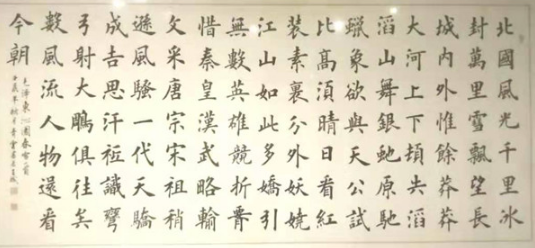 北國風光千里冰
封萬里雪飄望長
城内外惟餘莽莽
大河上下頓失滔
滔山舞銀虵原馳
蠟象欲與天公試
比高須晴日看紅
裝素裹分外妖嬈
江山如此多嬌引
無數英雄競折腰
惜秦皇漢武略輸
文采唐宗宋祖稍
遜風騷一代天驕
成吉思汗祗識彎
弓射大鵰俱往矣
數風流人物還看
今朝
毛澤東沁園春雪一首